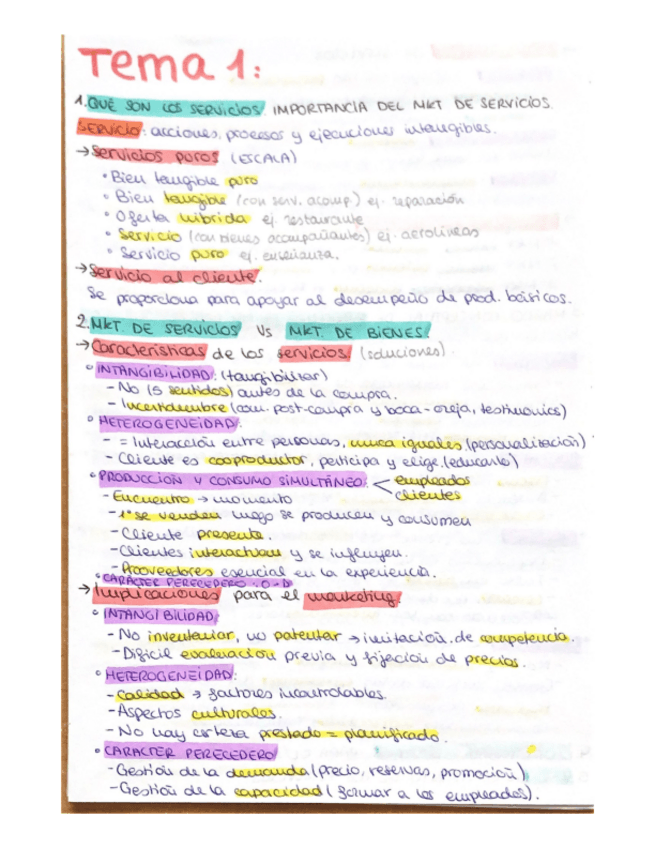 Tema 1:
1. QUÉ SON LOS SERVICIOS. IMPORTANCIA DEL MKT DE SERVICIOS.
SERVICIO: acciones, procesos y ejecuciones intangibles.
→ Servicios puros (ESCALA)
• Bien tangible puro
• Bien tangible (con serv. acomp.) ej. reparación
• Oferta híbrida ej. restaurante
• Servicio (con bienes acompañantes) ej. aerolíneas
• Servicio puro ej. enseñanza.
→ Servicio al cliente.
Se proporciona para apoyar al desempeño de prod. básicos.
2. MKT. DE SERVICIOS VS MKT. DE BIENES.
→ Características de los servicios (soluciones).
• INTANGIBILIDAD: (tangibilizar)
- No (5 sentidos) antes de la compra.
- Incertidumbre (com. post-compra y boca-oreja, testimonios)
• HETEROGENEIDAD:
- = Interacción entre personas, nunca iguales. (personalización)
- Cliente es cooproductor, participa y elige. (educarlo)
• PRODUCCIÓN Y CONSUMO SIMULTÁNEO: < empleados
clientes
- Encuentro → momento
- 1º se venden luego se producen y consumen
- Cliente presente.
- Clientes interactuan y se influyen.
- Proveedores esencial en la experiencia.
• CARÁCTER PERECEDERO. O-D
→ Implicaciones para el marketing
• INTANGIBILIDAD:
- No inventariar, no patentar → imitación de competencia.
- Dificil evaluación previa y fijación de precios.
• HETEROGENEIDAD:
- Calidad → factores incontrolables.
- Aspectos culturales.
- No hay certeza prestado = planificado.
• CARÁCTER PERECEDERO
- Gestión de la demanda (precio, reservas, promoción)
- Gestión de la capacidad (formar a los empleados).